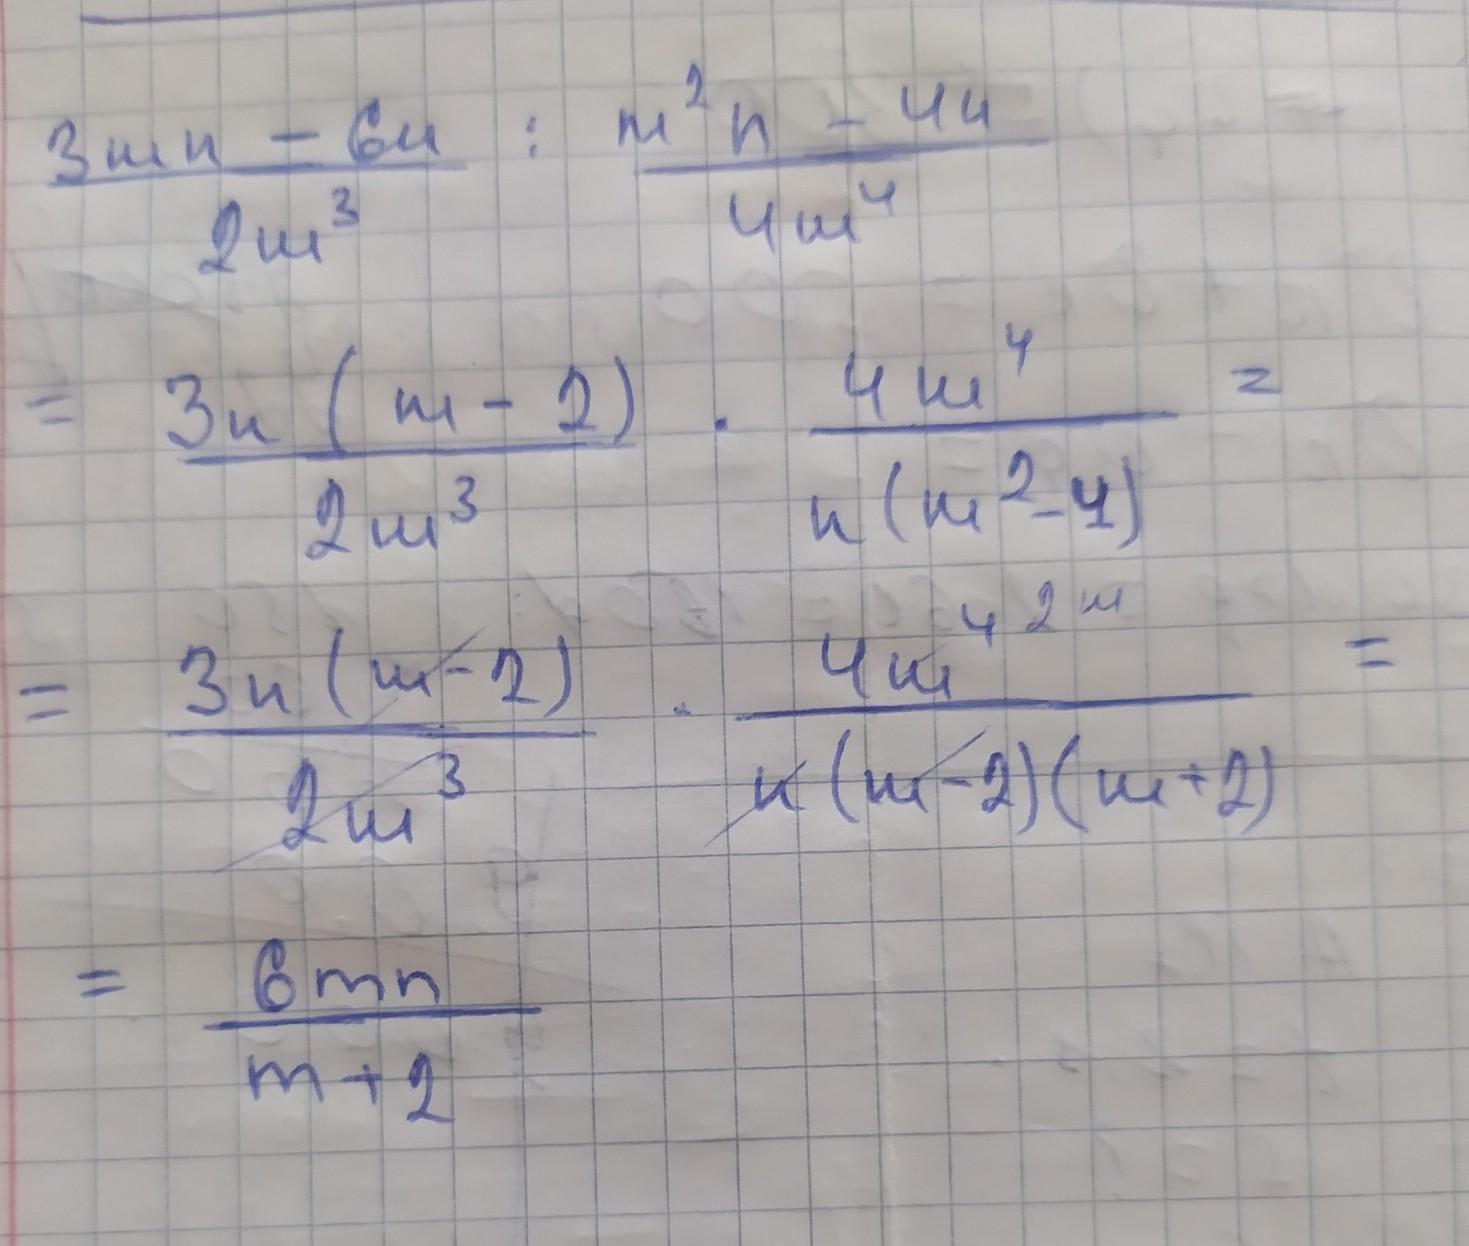 (3mn - 6n)/(2m³) : (m²n - 4n)/(4m⁴)
= (3n(m - 2))/(2m³) · (4m⁴)/(n(m² - 4)) =
= (3n(m - 2))/(2m³) · (4m⁴ 2m)/(n(m - 2)(m + 2)) =
= (6mn)/(m + 2)